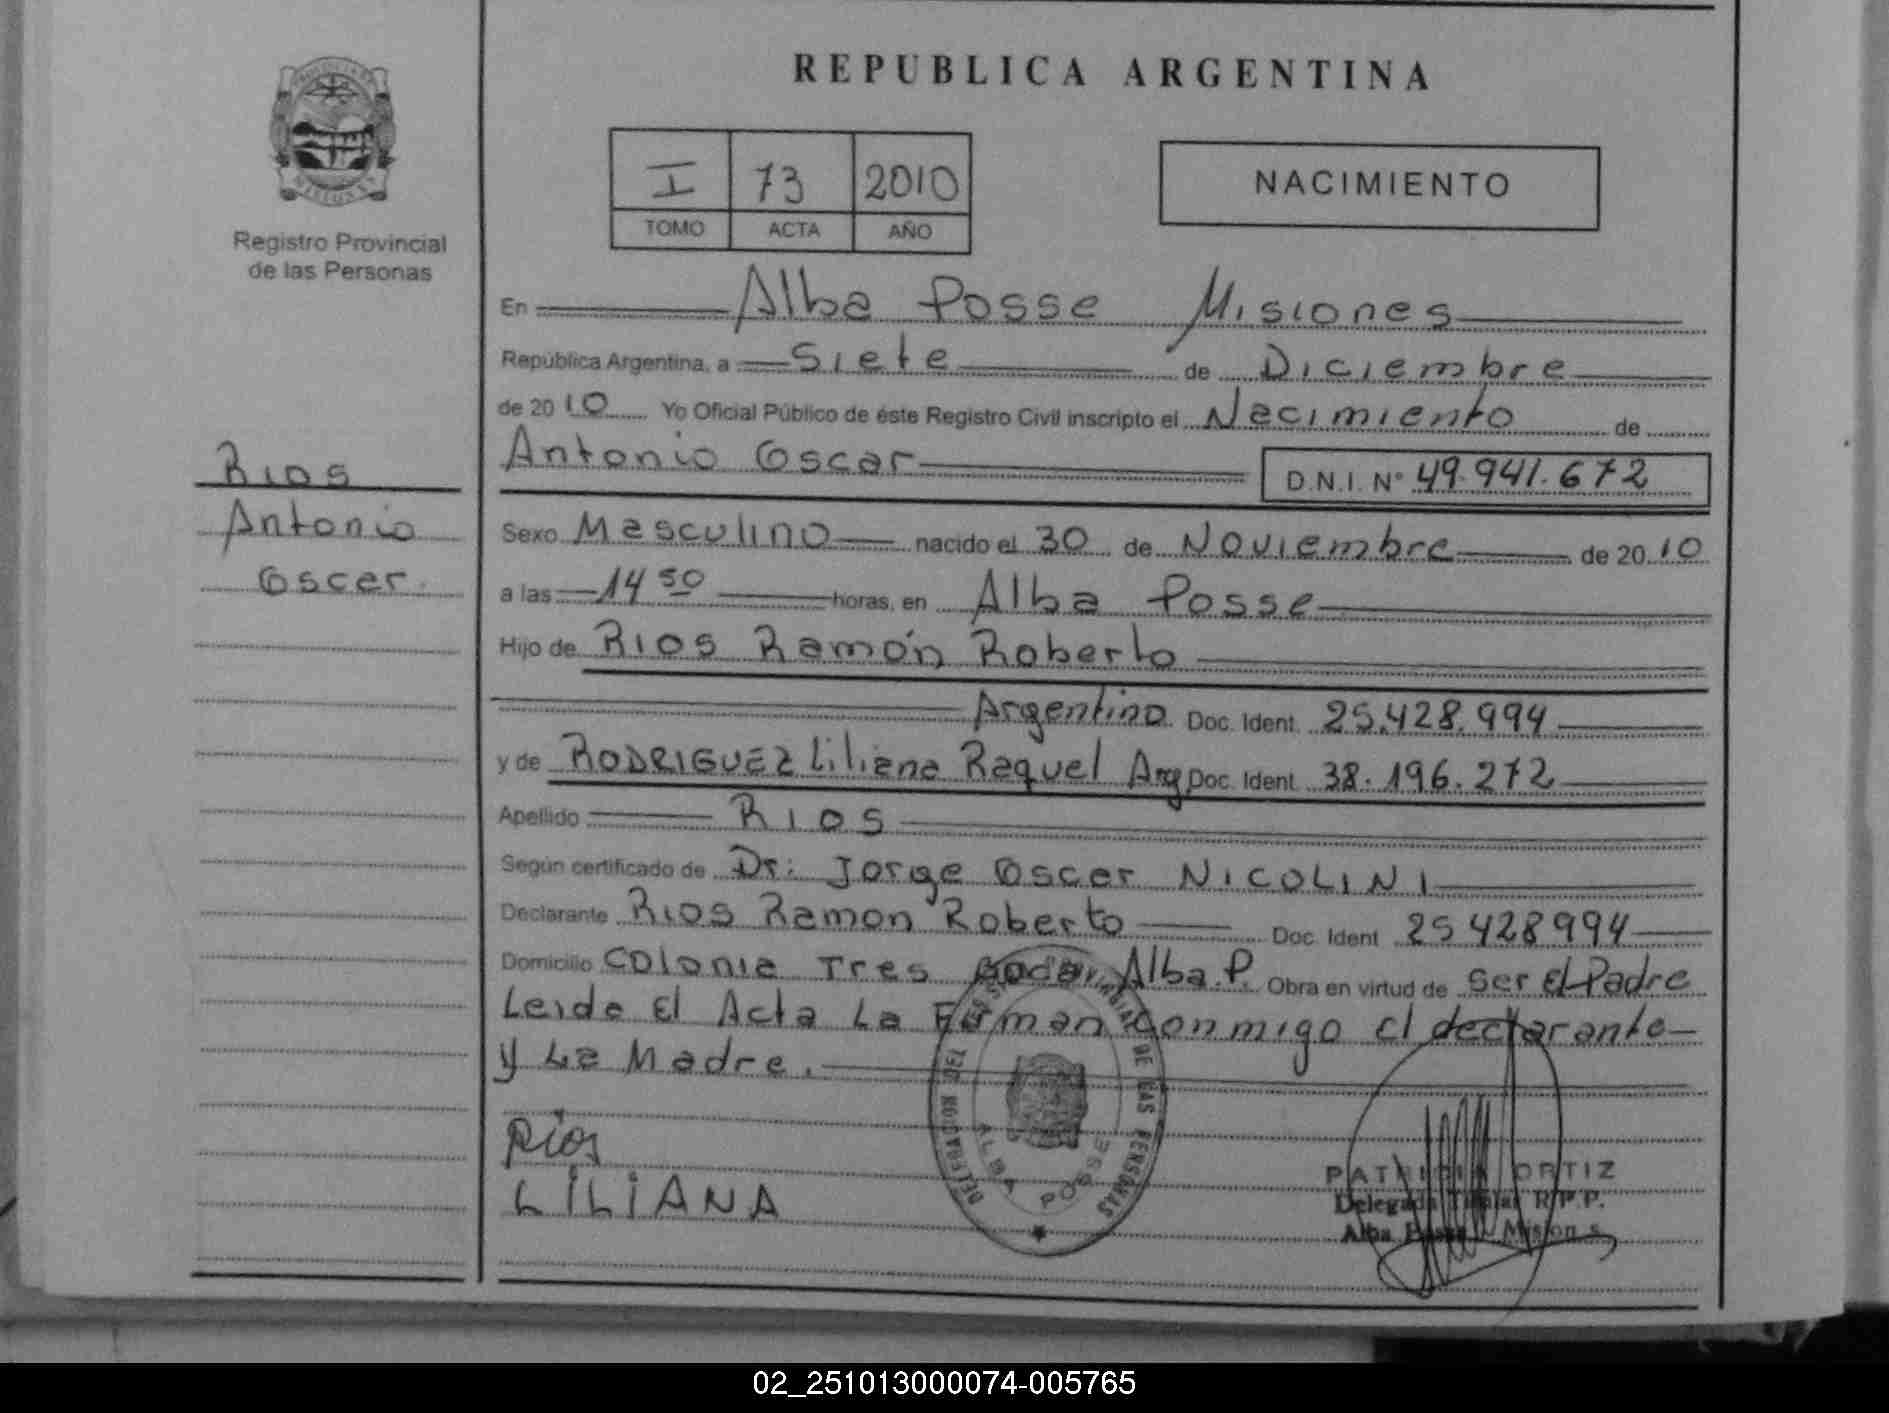 REPUBLICA ARGENTINA
I 73 2010
TOMO ACTA AÑO
NACIMIENTO
Registro Provincial
de las Personas
Rios
Antonio
Oscar.
En Alba Posse Misiones
República Argentina, a Siete de Diciembre
de 2010 Yo Oficial Público de éste Registro Civil inscripto el Nacimiento de
Antonio Oscar D.N.I. N° 49.941.672
Sexo Masculino nacido el 30 de Noviembre de 2010
a las 14 50 horas, en Alba Posse
Hijo de Rios Ramón Roberto
Argentino Doc. Ident. 25.428.994
y de RODRIGUEZ Liliana Raquel Arg Doc. Ident. 38.196.272
Apellido Rios
Según certificado de Dr: Jorge Oscar NICOLINI
Declarante Rios Ramon Roberto Doc. Ident 25428994
Domicilio Colonia Tres Alba P. Obra en virtud de Ser El Padre
Leida El Acta La Firman Conmigo el declarante
y La Madre.
Rios
LILIANA
DELEGACION DE LAS PERSONAS
ALBA POSSE
PATRICIA ORTIZ
Delegada Titular R.P.P.
Alba Posse Misiones
02_251013000074-005765